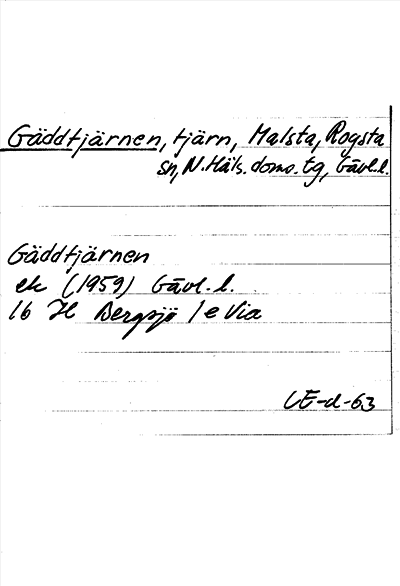 Gäddtjärnen, tjärn, Malsta, Rogsta
sn, N. Häls. doms. tg, Gävl. l.
Gäddtjärnen
ek (1959) Gävl. l.
16 H Bergsjö 1e Via
CE-d-63